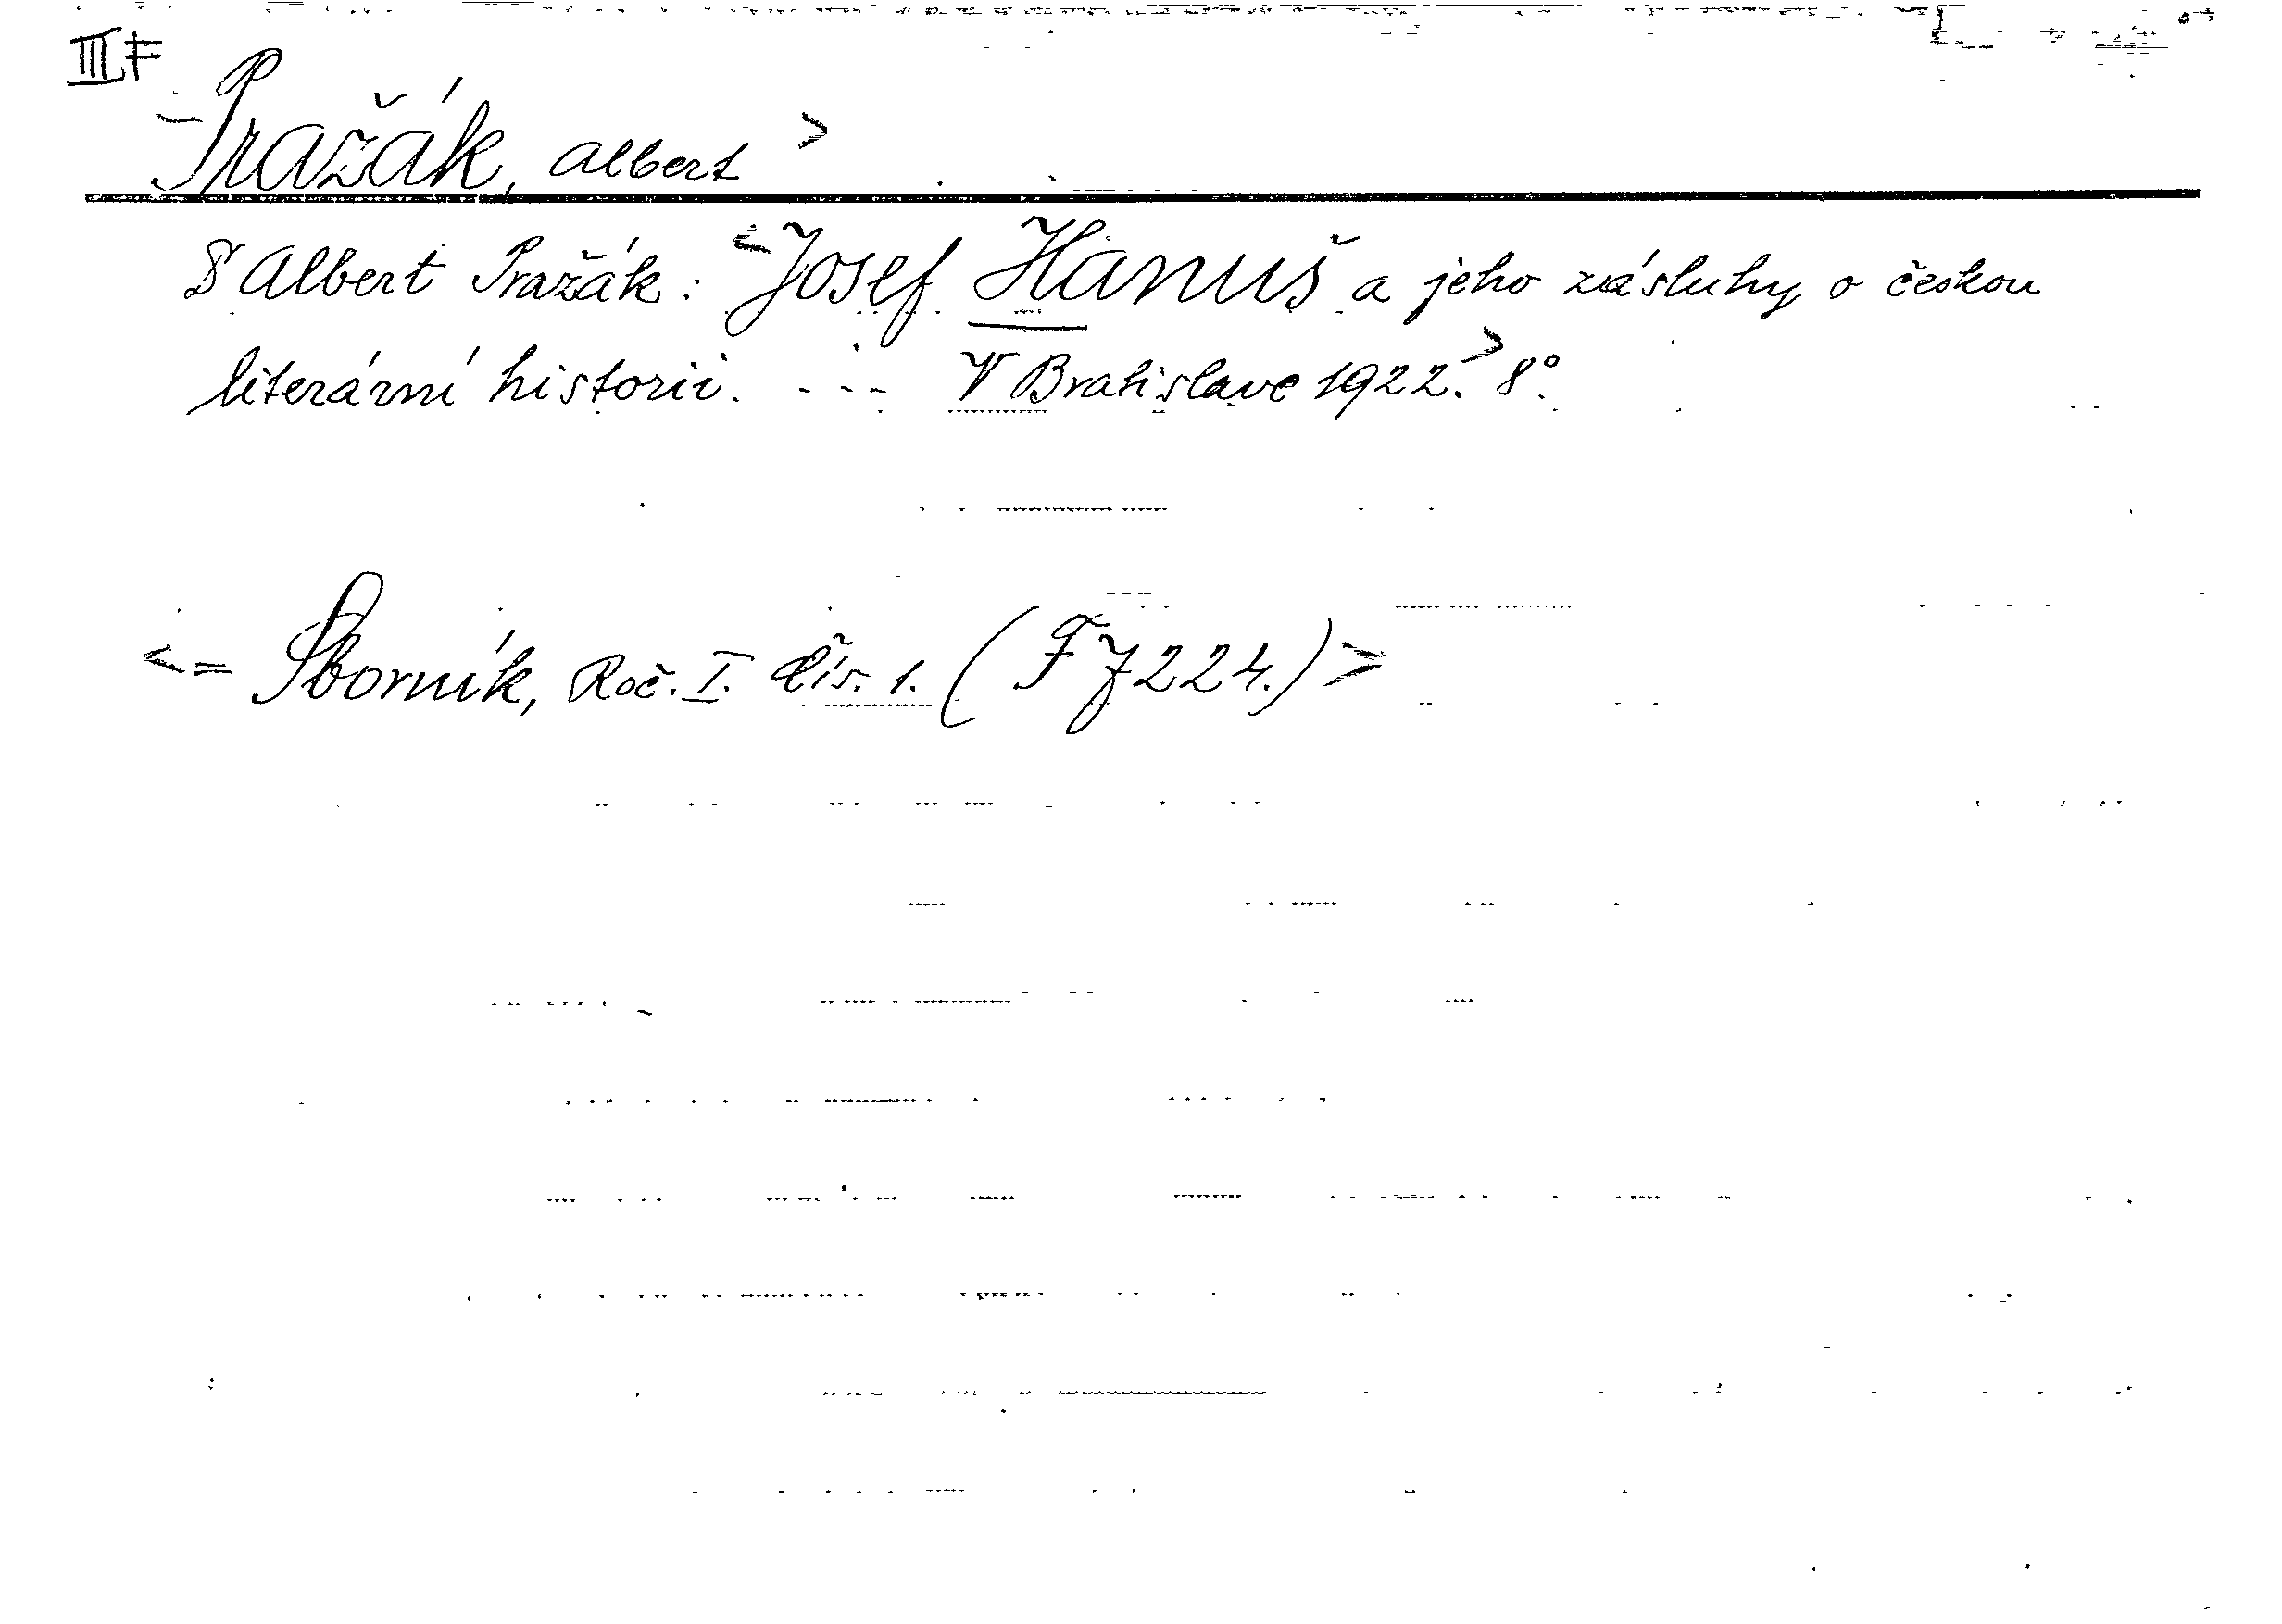 III F
Pražák, Albert >
Dr Albert Pražák: <Josef Hanuš a jeho zásluhy o českou
literární historii. --- V Bratislave 1922.> 8°.
<= Sborník, Roč. I. Čís. 1. (F 7224.)>